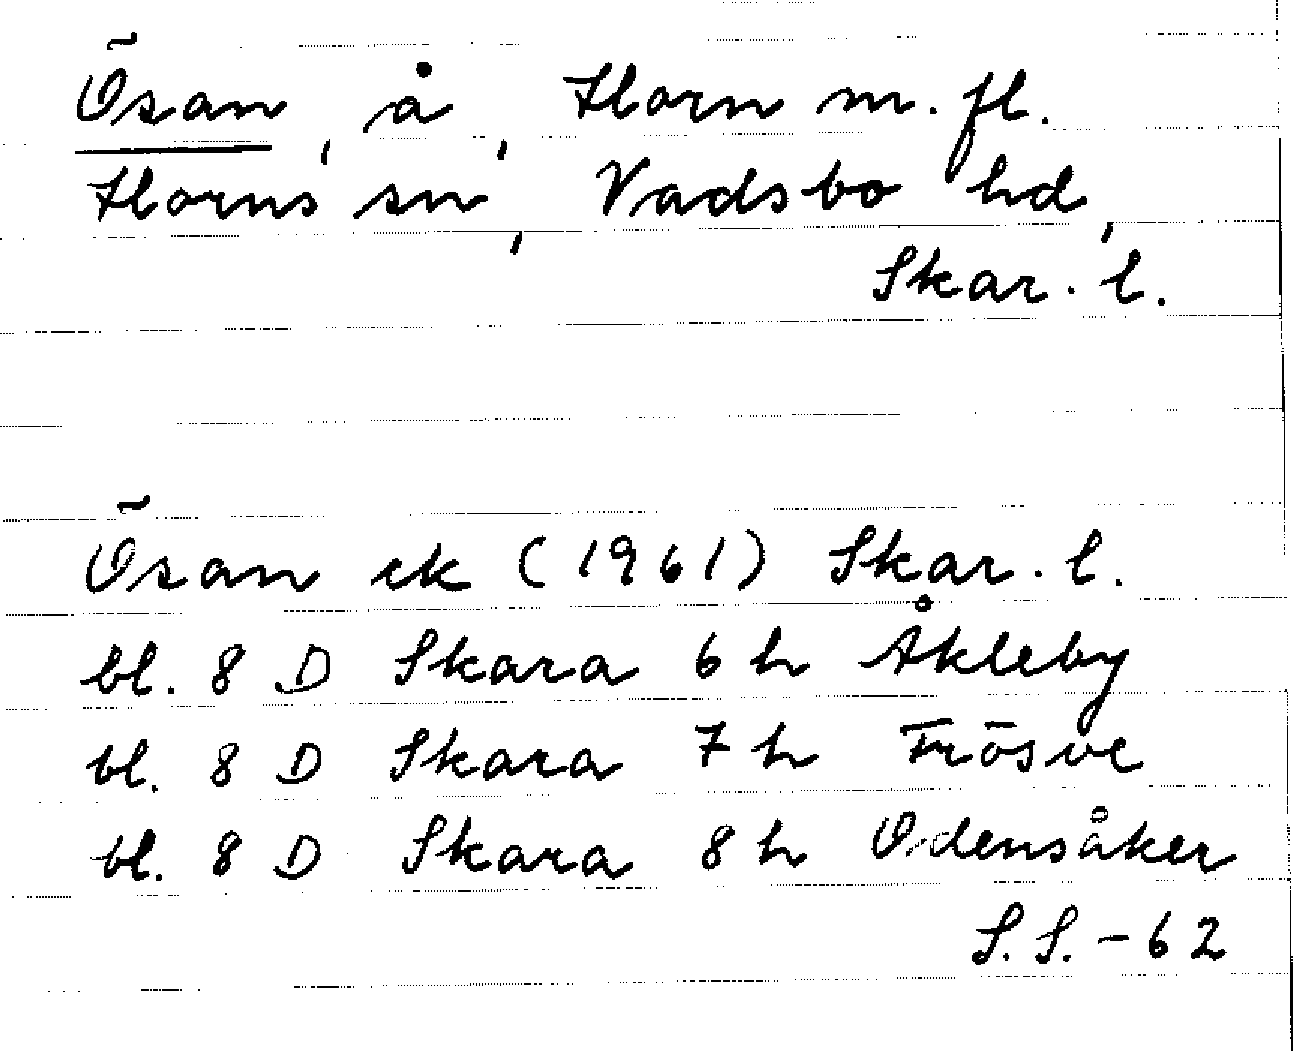 Ösan, å, Horn m. fl.
Horns sn, Vadsbo hd,
Skar. l.
Ösan ek (1961) Skar. l.
bl. 8 D Skara 6 h Åkleby
bl. 8 D Skara 7 h Frösve
bl. 8 D Skara 8 h Odensåker
S.S. - 62